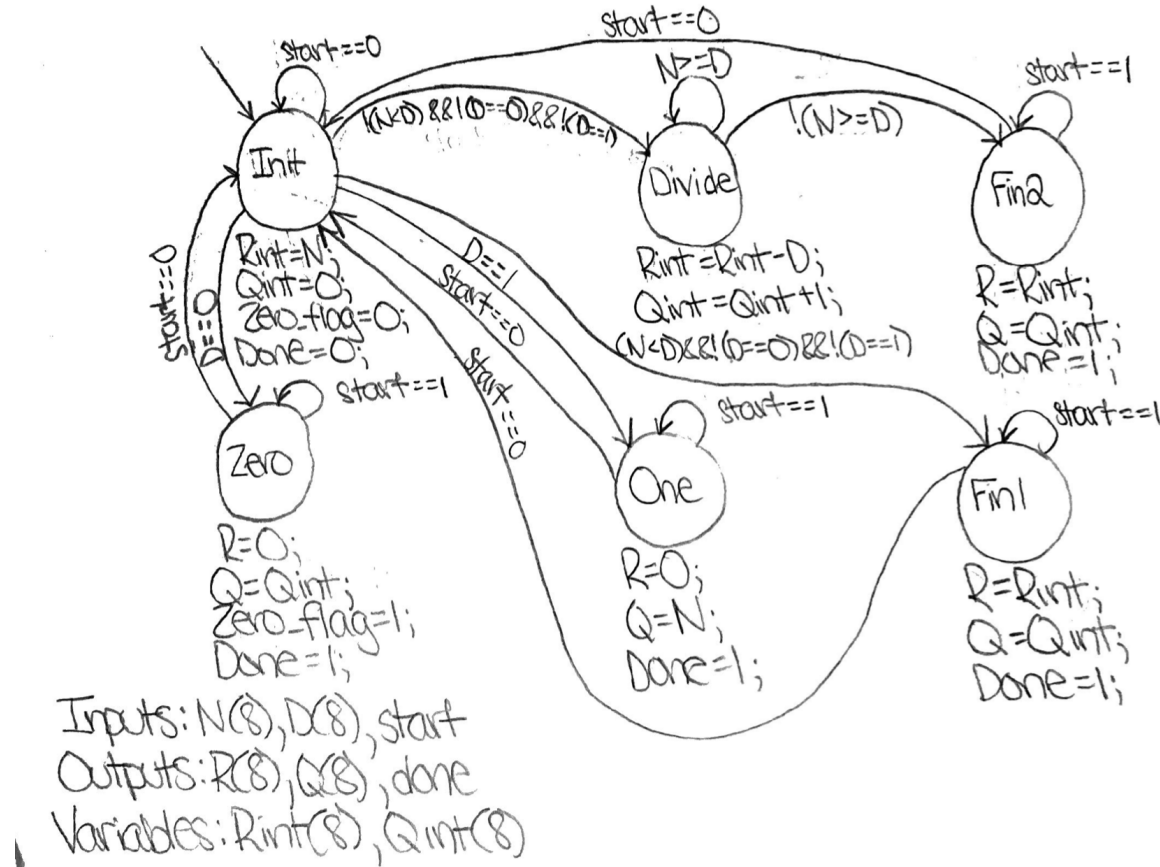 start==0
start==0
N>=D
start==1
!(N<D)&&!(D==0)&&!(D==1)
!(N>=D)
Init
Divide
Fin2
Rint=N;
Qint=0;
Zero_flag=0;
Done=0;
Rint=Rint-D;
Qint=Qint+1;
R=Rint;
Q=Qint;
Done=1;
start==0
D==0
D==1
start==0
(N<D)&&!(D==0)&&!(D==1)
start==0
start==1
start==1
start==1
Zero
One
Fin1
R=0;
Q=Qint;
Zero_flag=1;
Done=1;
R=0;
Q=N;
Done=1;
R=Rint;
Q=Qint;
Done=1;
Inputs: N(8), D(8), start
Outputs: R(8), Q(8), done
Variables: Rint(8), Qint(8)